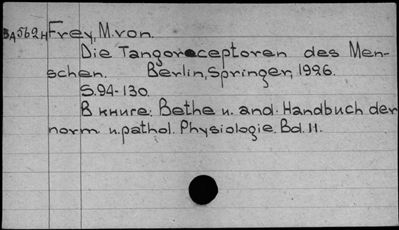 BA562H Frey, M. von.
Die Tangoreceptoren des Men-
schen. Berlin, Springer, 1926.
S. 94-130.
В книге: Bethe u. and. Handbuch der
norm u. pathol. Physiologie. Bd. 11.